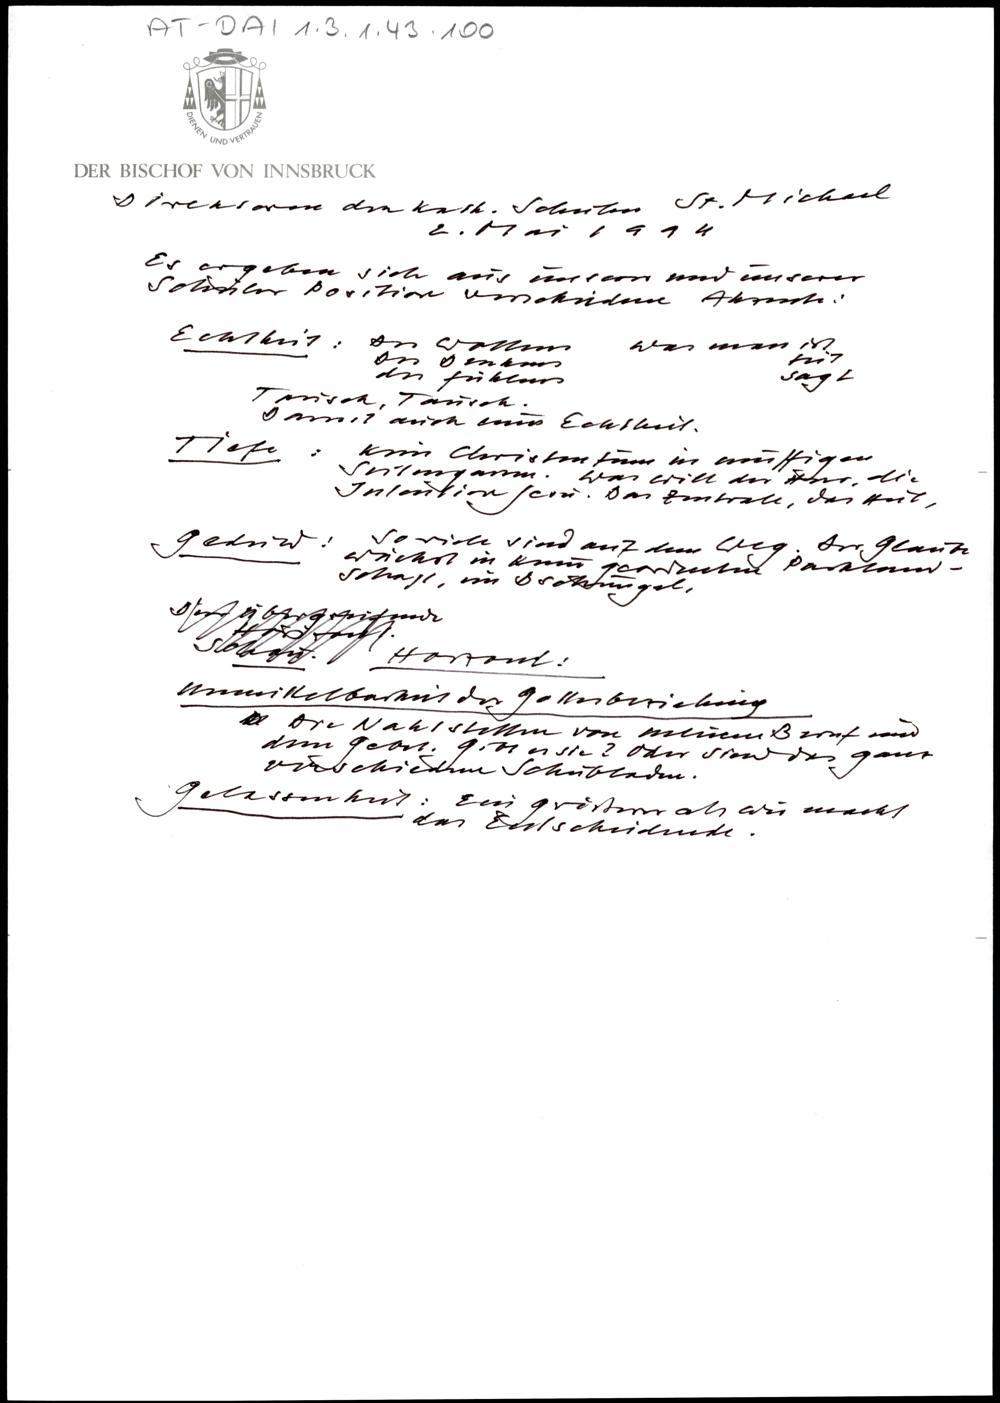 AT-DAI 1.3.1.43.100
DIENEN UND VERTRAUEN
DER BISCHOF VON INNSBRUCK
Direktoren der kath. Schulen St. Michael
2. Mai 1994
Es ergeben sich aus unserer und unserer
Schüler Position verschiedene
Echtheit: Des Wollens was man ist
Des Denkens tut
des Fühlens sagt
Tausch, Tausch.
Damit auch eine Echtheit.
Tiefe: Kein Christentum in muffigen
Was will der Herr, die
Intention Jesu. Das Zentrale, das Heil,
Geduld: So viele sind auf dem Weg. Der Glaube
wächst in keiner geordneten Parkland-
schaft, im Dschungel.
übergreifende
Schau. Horizont:
Unmittelbarkeit der Gottesbeziehung
Die Nahtstellen von meinem Beruf und
dem Gebet. Gibt es sie? Oder sind das ganz
verschiedene Schubladen.
Gelassenheit: Ein größerer als wir macht
das Entscheidende.